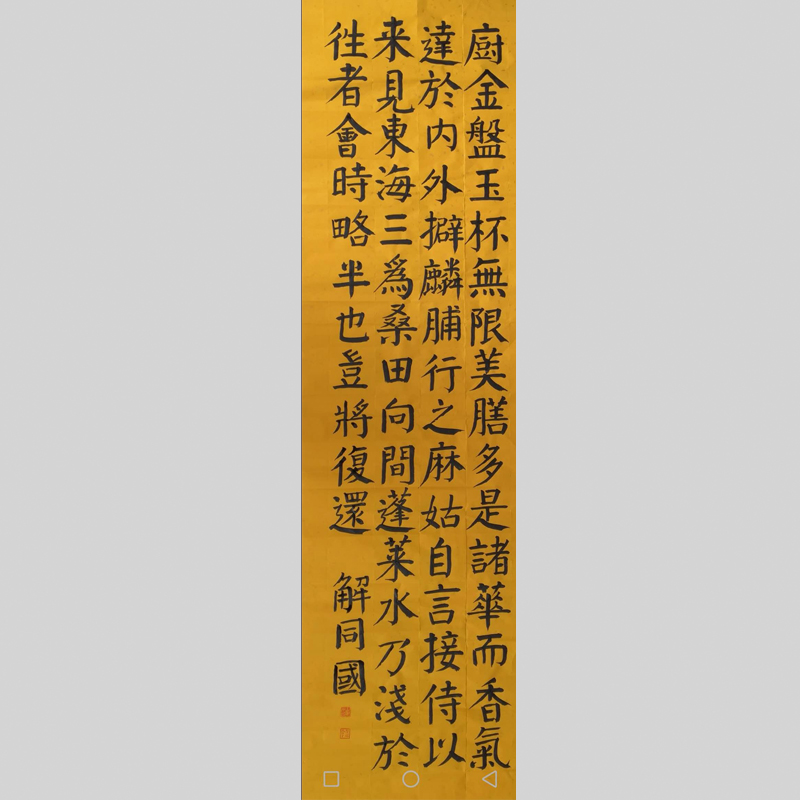 廚金盤玉杯無限美膳多是諸華而香氣
達於內外擗麟脯行之麻姑自言接侍以
来見東海三為桑田向間蓬莱水乃淺於
徃者會時略半也豈將復還
解同國